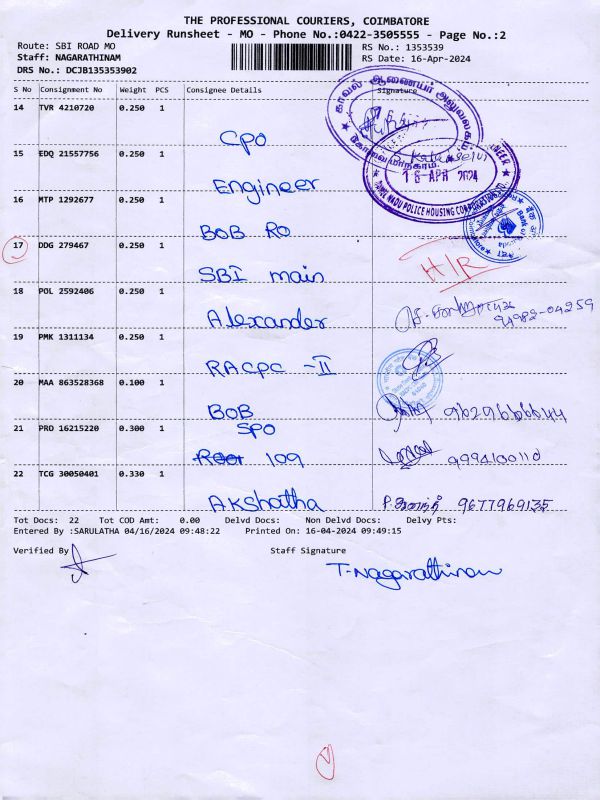 THE PROFESSIONAL COURIERS, COIMBATORE
Delivery Runsheet - MO - Phone No.:0422-3505555 - Page No.:2
Route: SBI ROAD MO
RS No.: 1353539
Staff: NAGARATHINAM
RS Date: 16-Apr-2024
DRS No.: DCJB135353902
S No Consignment No Weight PCS Consignee Details Signature
காவல் ஆணையர் அலுவலகம்
கோவை மாநகரம்
14 TVR 4210720 0.250 1
CPO
15 EDQ 21557756 0.250 1
Engineer
Kalaiselvi
16 APR 2024
TAMIL NADU POLICE HOUSING CORPORATION
16 MTP 1292677 0.250 1
BOB RO
Bank of Baroda
17 DDG 279467 0.250 1
SBI main
H/R
18 POL 2592406 0.250 1
Alexander
94982-04259
19 PMK 1311134 0.250 1
RACPC - II
20 MAA 863528368 0.100 1
BOB
9629666644
21 PRO 16215220 0.300 1
SPO
109
9994100110
22 TCG 30050401 0.330 1
Akshatha
9677969135
Tot Docs: 22 Tot COD Amt: 0.00 Delvd Docs: Non Delvd Docs: Delvy Pts:
Entered By :SARULATHA 04/16/2024 09:48:22 Printed On: 16-04-2024 09:49:15
Verified By
Staff Signature
T. Nagarathinam